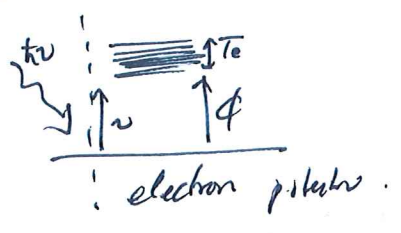 ħν
Te
ν
ϕ
electron